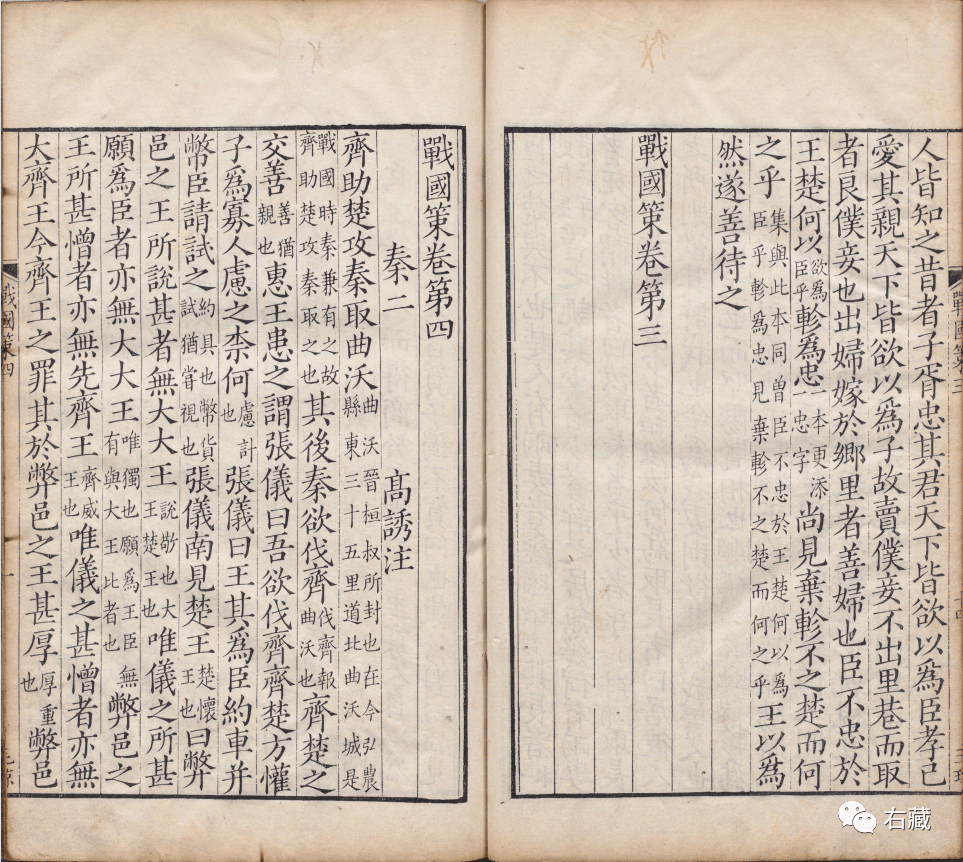 人皆知之昔者子胥忠其君天下皆欲以爲臣孝己
愛其親天下皆欲以爲子故賣僕妾不出里巷而取
者良僕妾也出婦嫁於鄉里者善婦也臣不忠於
王楚何以欲爲臣乎軫爲忠一本更添一忠字尚見棄軫不之楚而何
之乎集與此本同曾臣不忠於王楚何以爲臣乎軫爲忠見棄軫不之楚而何之乎王以爲
然遂善待之
戰國策卷第三
戰國策三
十四
戰國策卷第四
秦二 高誘注
齊助楚攻秦取曲沃曲沃晉桓叔所封也在今弘農縣東三十五里道北曲沃城是
戰國時秦兼有之故齊助楚攻秦取之也其後秦欲伐齊伐齊報曲沃也齊楚之
交善善猶親也惠王患之謂張儀曰吾欲伐齊齊楚方懽
子爲寡人慮之柰何慮計也張儀曰王其爲臣約車并
幣臣請試之約具也幣貨試猶嘗視也張儀南見楚王楚懷王也曰弊
邑之王所說甚者無大大王說敬也大王楚王也唯儀之所甚
願爲臣者亦無大大王唯獨也願爲王臣無有與大王比者也弊邑之
王所甚憎者亦無先齊王齊威王也唯儀之甚憎者亦無
大齊王今齊王之罪其於弊邑之王甚厚厚重也弊邑
戰國策四
一
右藏